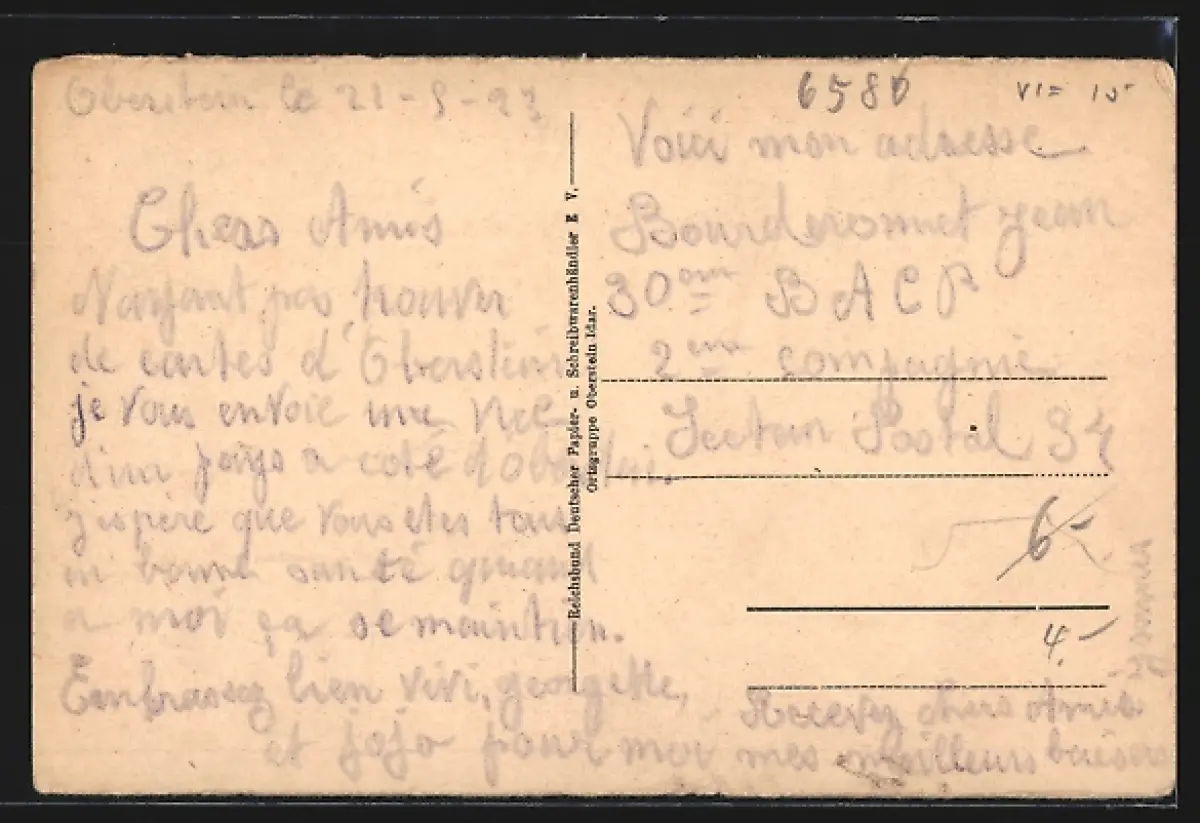 Oberstein le 21-5-23
Chers Amis
N'ayant pas trouver
de cartes d'Oberstein
je vous envoie une
d'un pays a coté d'Oberstein.
j'espère que vous etes tous
en bonne santé quand
a moi ça se maintien.
Embrassez bien vivi, georgette,
et jojo pour moi
6586
VI= 15-
Voici mon adresse
Jean
30 eme B A C P
2 eme compagnie
Secteur Postal 34
6-
4.-
Recevez chers Amis
mes meilleurs baisers
Reichsbund Deutscher Papier- u. Schreibwarenhändler E. V.
Ortsgruppe Oberstein Idar.